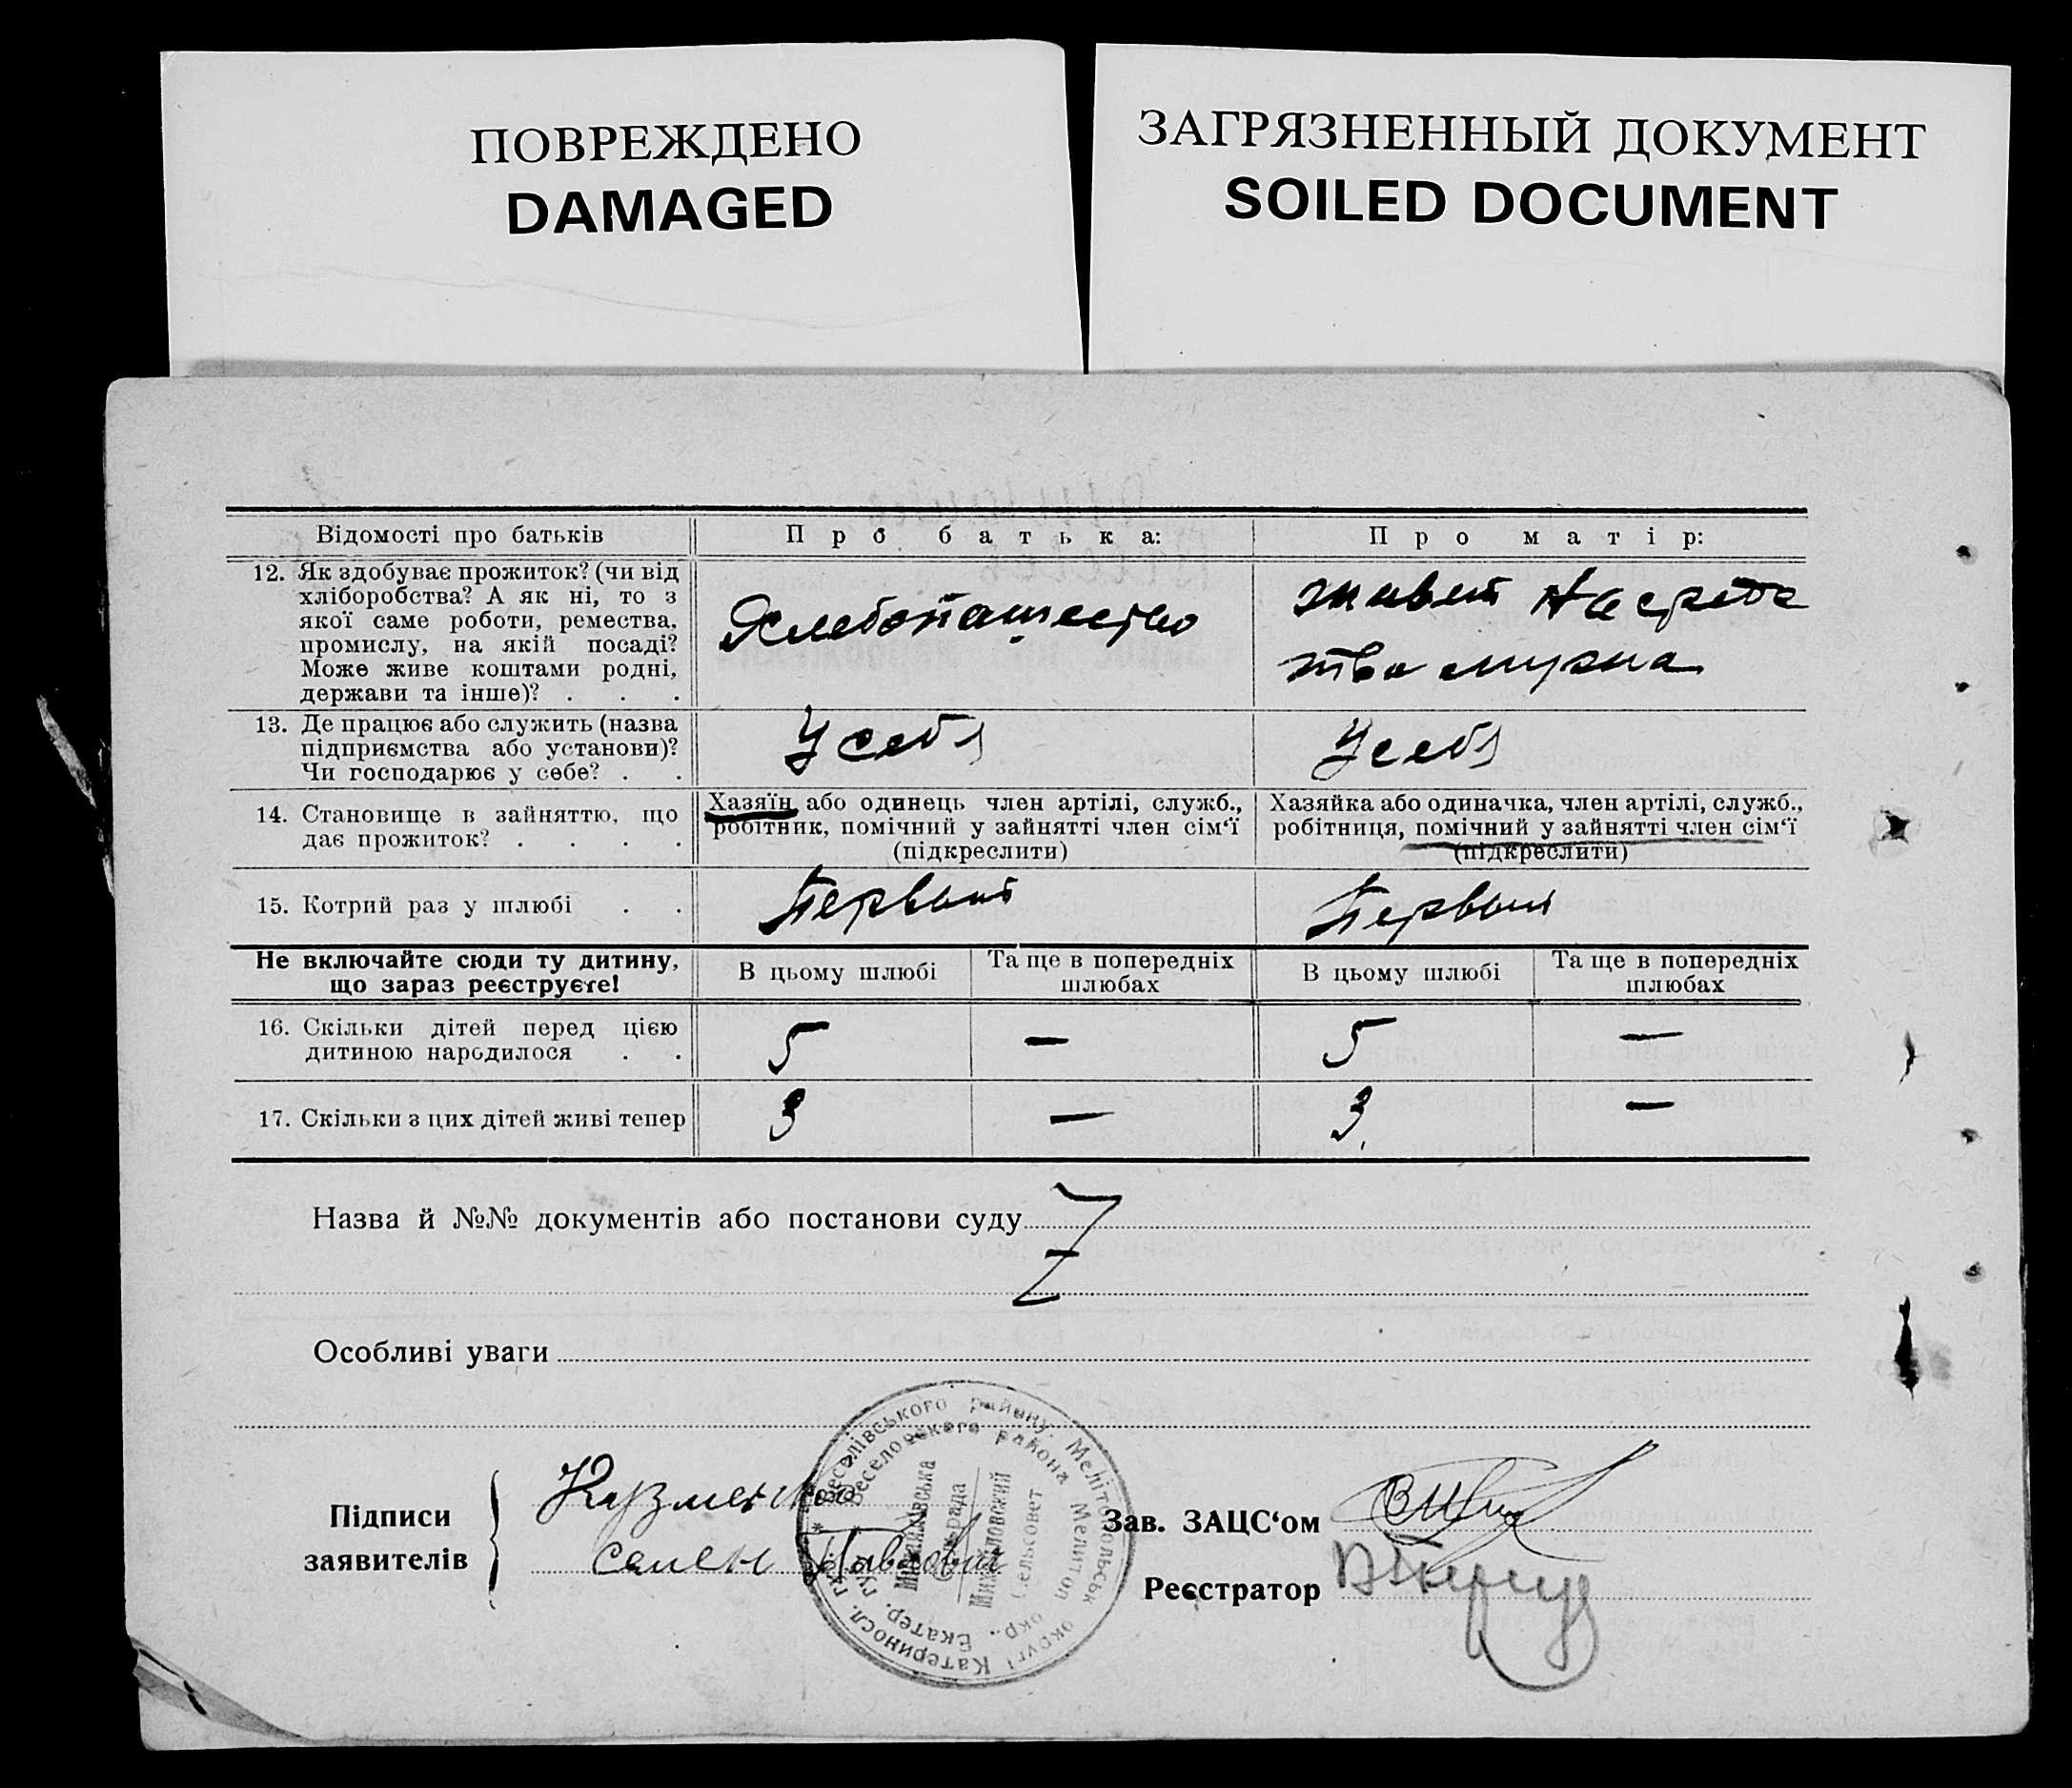 ПОВРЕЖДЕНО
DAMAGED
ЗАГРЯЗНЕННЫЙ ДОКУМЕНТ
SOILED DOCUMENT
Відомості про батьків
Про батька:
Про матір:
12. Як здобуває прожиток? (чи від
хліборобства? А як ні, то з
якої саме роботи, ремества,
промислу, на якій посаді?
Може живе коштами родні,
держави та інше)? . . .
Хлебопашество
живет на средс
тва мужа
13. Де працює або служить (назва
підприємства або установи)?
Чи господарює у себе? . .
У себя
У себя
14. Становище в зайняттю, що
дає прожиток? . . . .
Хазяїн або одинець член артілі, служб.,
робітник, помічний у зайнятті член сім‘ї
(підкреслити)
Хазяйка або одиначка, член артілі, служб.,
робітниця, помічний у зайнятті член сім‘ї
(підкреслити)
15. Котрий раз у шлюбі . .
Первый
Первый
Не включайте сюди ту дитину,
що зараз реєструєте!
В цьому шлюбі
Та ще в попередніх
шлюбах
В цьому шлюбі
Та ще в попередніх
шлюбах
16. Скільки дітей перед цією
дитиною народилося . .
5
—
5
—
17. Скільки з цих дітей живі тепер
3
—
3
—
Назва й №№ документів або постанови суду
Особливі уваги
Підписи
заявителів
Кузменко
Семен Павлович
Веселівського району. Мелітопольськ округі Катериносл. г
Веселовского района Мелитоп окр., Екатер. гу
Михайлівська
Сільрада
Михайловский
Сельсовет
Зав. ЗАЦС‘ом
Реєстратор